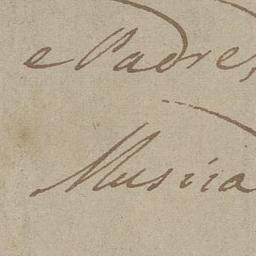 e Padre,
Musica